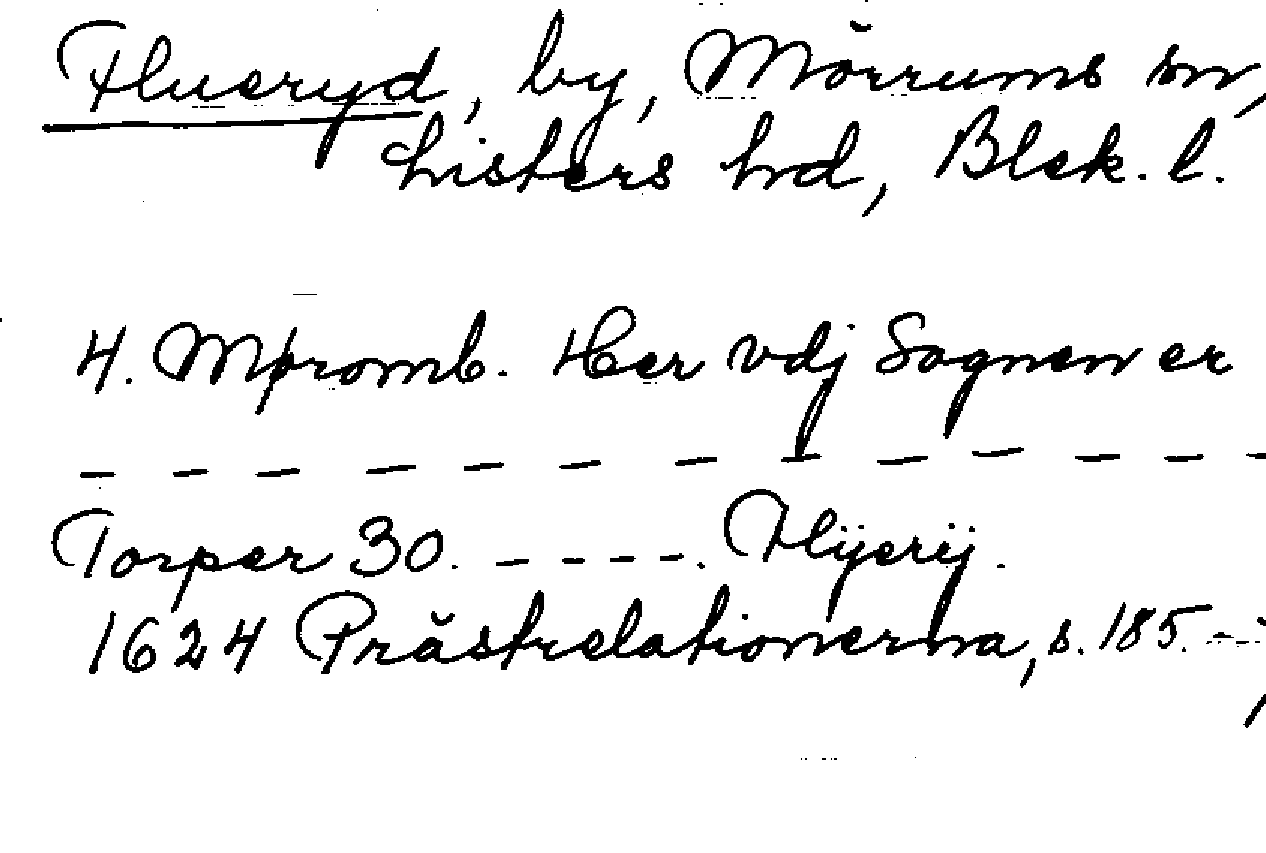 Flueryd, by, Mörrums sn,
Listers hd, Blek. l.
4. Møromb. Her vdj Sognen er
— — — — — — — — — — — —
Torper 30. – – – –. Flÿerij.
1624 Prästrelationerna, s. 185.